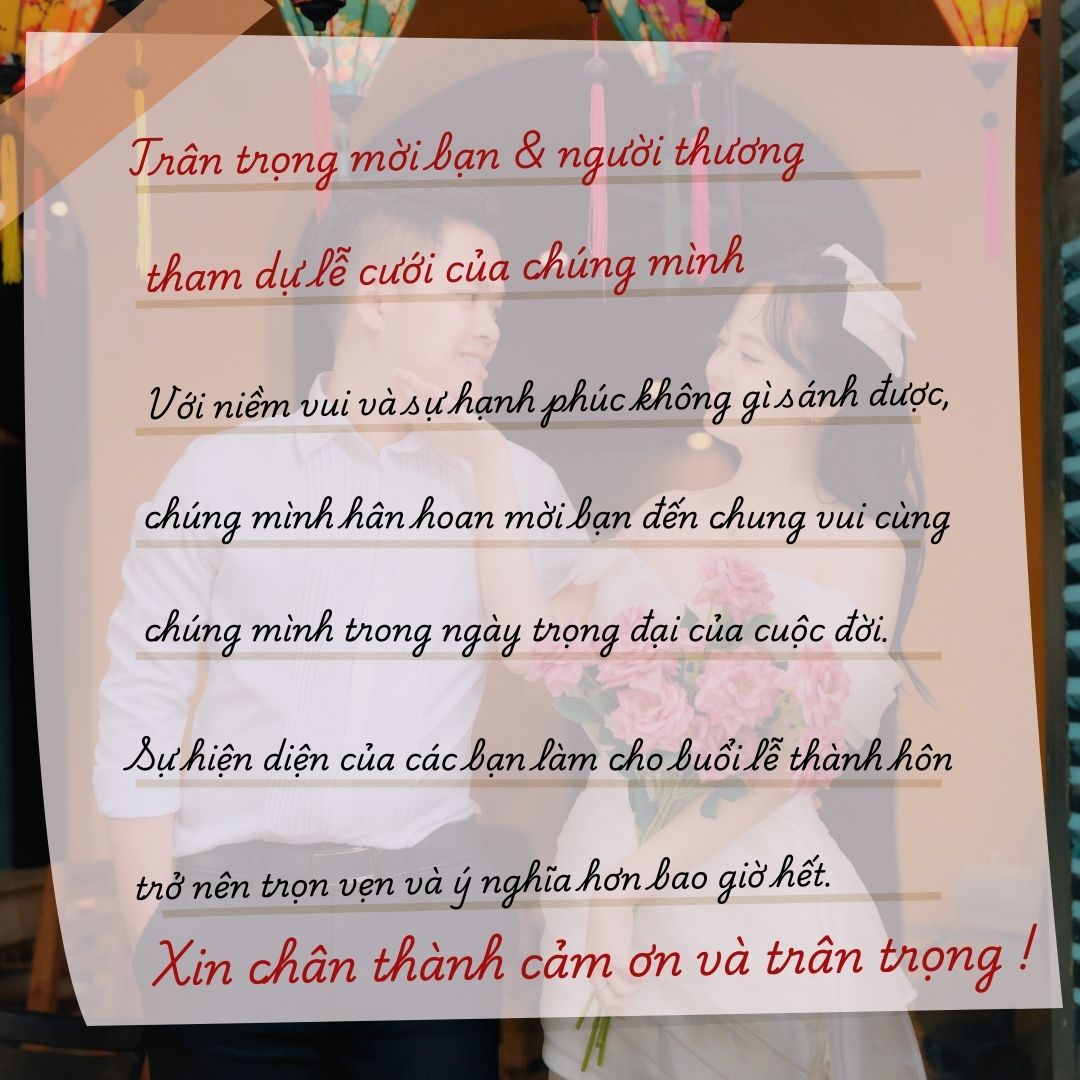 Trân trọng mời bạn & người thương
tham dự lễ cưới của chúng mình
Với niềm vui và sự hạnh phúc không gì sánh được,
chúng mình hân hoan mời bạn đến chung vui cùng
chúng mình trong ngày trọng đại của cuộc đời.
Sự hiện diện của các bạn làm cho buổi lễ thành hôn
trở nên trọn vẹn và ý nghĩa hơn bao giờ hết.
Xin chân thành cảm ơn và trân trọng !